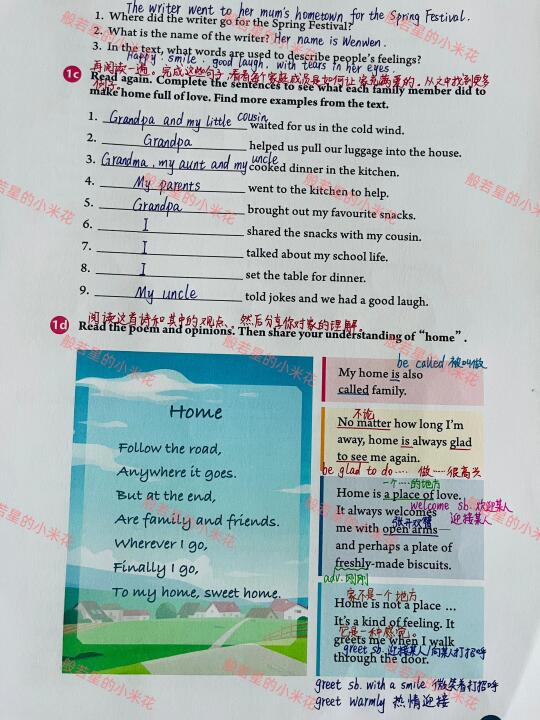 The writer went to her mum's hometown for the Spring Festival.
1. Where did the writer go for the Spring Festival?
2. What is the name of the writer? Her name is Wenwen.
3. In the text, what words are used to describe people's feelings?
Happy, smile, good laugh, with tears in her eyes.
再阅读一遍。完成这些句子,看看每个家庭成员是如何让家充满爱的。从文中找到更多例子。
1c Read again. Complete the sentences to see what each family member did to
make home full of love. Find more examples from the text.
1. Grandpa and my little cousin waited for us in the cold wind.
2. Grandpa helped us pull our luggage into the house.
3. Grandma, my aunt and my uncle cooked dinner in the kitchen.
4. My parents went to the kitchen to help.
5. Grandpa brought out my favourite snacks.
6. I shared the snacks with my cousin.
7. I talked about my school life.
8. I set the table for dinner.
9. My uncle told jokes and we had a good laugh.
阅读这首诗和其中的观点、然后分享你对家的理解。
1d Read the poem and opinions. Then share your understanding of "home".
Home
Follow the road,
Anywhere it goes.
But at the end,
Are family and friends.
Wherever I go,
Finally I go,
To my home, sweet home.
be called 被叫做
My home is also
called family.
不论
No matter how long I'm
away, home is always glad
to see me again.
be glad to do.... 做…很高兴
一个……的地方
Home is a place of love.
welcome sb. 欢迎某人
It always welcomes
迎接某人
张开双臂
me with open arms—
and perhaps a plate of
freshly-made biscuits.
adv. 刚刚
家不是一个地方
Home is not a place ...
It's a kind of feeling. It
它是一种感觉。
greets me when I walk
greet sb. 迎接某人/向某人打招呼
through the door.
greet sb. with a smile 微笑着打招呼
greet warmly 热情迎接
般若星的小米花